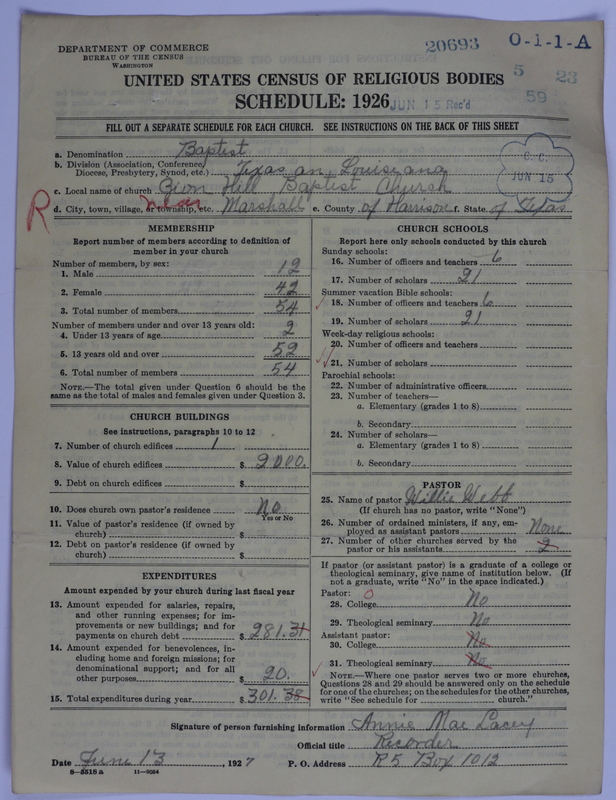 DEPARTMENT OF COMMERCE
BUREAU OF THE CENSUS
WASHINGTON
20693 O-1-1-A
5 23
59
UNITED STATES CENSUS OF RELIGIOUS BODIES
SCHEDULE: 1926 JUN 15 Rec'd
FILL OUT A SEPARATE SCHEDULE FOR EACH CHURCH. SEE INSTRUCTIONS ON THE BACK OF THIS SHEET
C. C.
JUN 15
a. Denomination Baptist
b. Division (Association, Conference,
Diocese, Presbytery, Synod, etc.) Texas an Louisiana
c. Local name of church Hill Baptist Church
R d. City, town, village, or township, etc. near Marshall e. County of Harrison f. State of Texas
MEMBERSHIP
Report number of members according to definition of
member in your church
Number of members, by sex:
1. Male 12
2. Female 42
3. Total number of members 54
Number of members under and over 13 years old:
4. Under 13 years of age 2
5. 13 years old and over 52
6. Total number of members 54
NOTE.—The total given under Question 6 should be the
same as the total of males and females given under Question 3.
CHURCH BUILDINGS
See instructions, paragraphs 10 to 12
7. Number of church edifices 1
8. Value of church edifices $ 2000.
9. Debt on church edifices $
10. Does church own pastor's residence No
Yes or No
11. Value of pastor's residence (if owned by
church) $
12. Debt on pastor's residence (if owned by
church) $
EXPENDITURES
Amount expended by your church during last fiscal year
13. Amount expended for salaries, repairs,
and other running expenses; for im-
provements or new buildings; and for
payments on church debt $ 281.31
14. Amount expended for benevolences, in-
cluding home and foreign missions; for
denominational support; and for all
other purposes $ 20.
15. Total expenditures during year $ 301.38
CHURCH SCHOOLS
Report here only schools conducted by this church
Sunday schools:
16. Number of officers and teachers 6
17. Number of scholars 21
Summer vacation Bible schools:
18. Number of officers and teachers 6
19. Number of scholars 21
Week-day religious schools:
20. Number of officers and teachers
21. Number of scholars
Parochial schools:
22. Number of administrative officers
23. Number of teachers—
a. Elementary (grades 1 to 8)
b. Secondary
24. Number of scholars—
a. Elementary (grades 1 to 8)
b. Secondary
PASTOR
25. Name of pastor Willie Webb
(If church has no pastor, write "None")
26. Number of ordained ministers, if any, em-
ployed as assistant pastors None
27. Number of other churches served by the
pastor or his assistants 2
If pastor (or assistant pastor) is a graduate of a college or
theological seminary, give name of institution below. (If
not a graduate, write "No" in the space indicated.)
Pastor: O
28. College No
29. Theological seminary No
Assistant pastor:
30. College No
31. Theological seminary No
NOTE.—Where one pastor serves two or more churches,
Questions 28 and 29 should be answered only on the schedule
for one of the churches; on the schedules for the other churches,
write "See schedule for church."
Signature of person furnishing information Annie Mae Lacey
Official title Recorder
Date June 13, 1927 P. O. Address R5 Box 1012
8—5518 a 11—9084